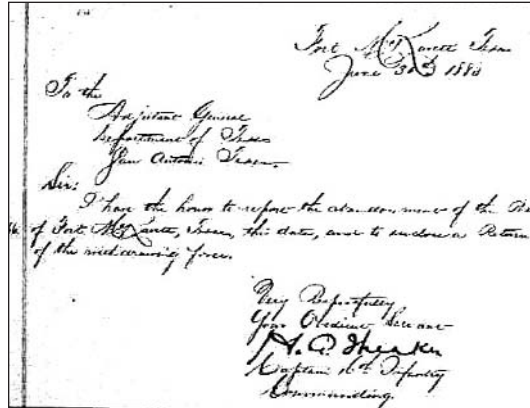 Fort McKavett Texas
June 30th 1883
To the
Adjutant General
Department of Texas
San Antonio Texas.
Sir:
I have the honor to report the abandonment of the
of Fort McKavett, Texas, this date, and to enclose a Return
of the withdrawing force.
Very Respectfully
Your Obedient Servant
H. A. Theaker
Captain 16th Infantry
Commanding.